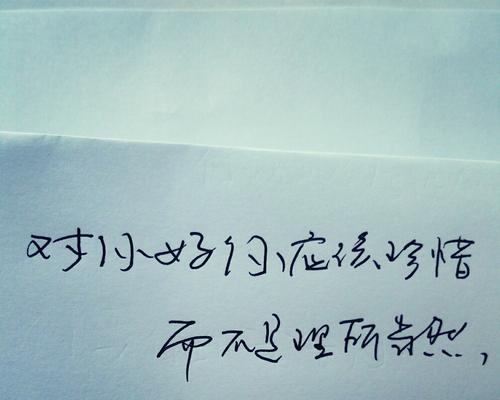 对你好的你应该珍惜
而不是理所当然,